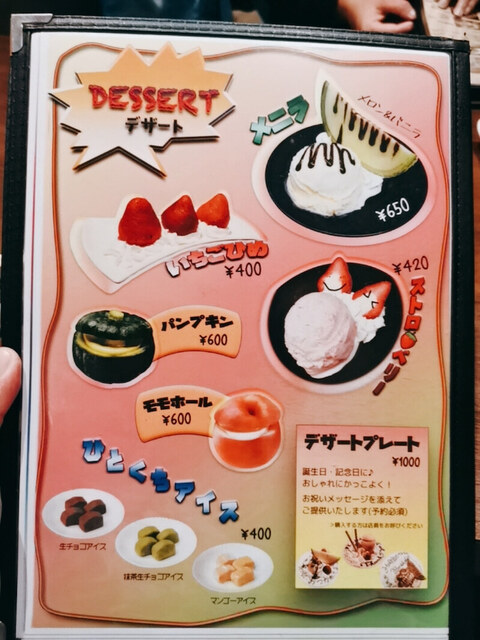 DESSERT
デザート
メニラ
メロン&バニラ
¥650
いちごひめ
¥400
¥420
ストロベリー
パンプキン
¥600
モモホール
¥600
ひとくちアイス
¥400
生チョコアイス
抹茶生チョコアイス
マンゴーアイス
デザートプレート
¥1000
誕生日・記念日に♪
おしゃれにかっこよく！
お祝いメッセージを添えて
ご提供いたします(予約必須)
>購入する方は店員をお呼びください